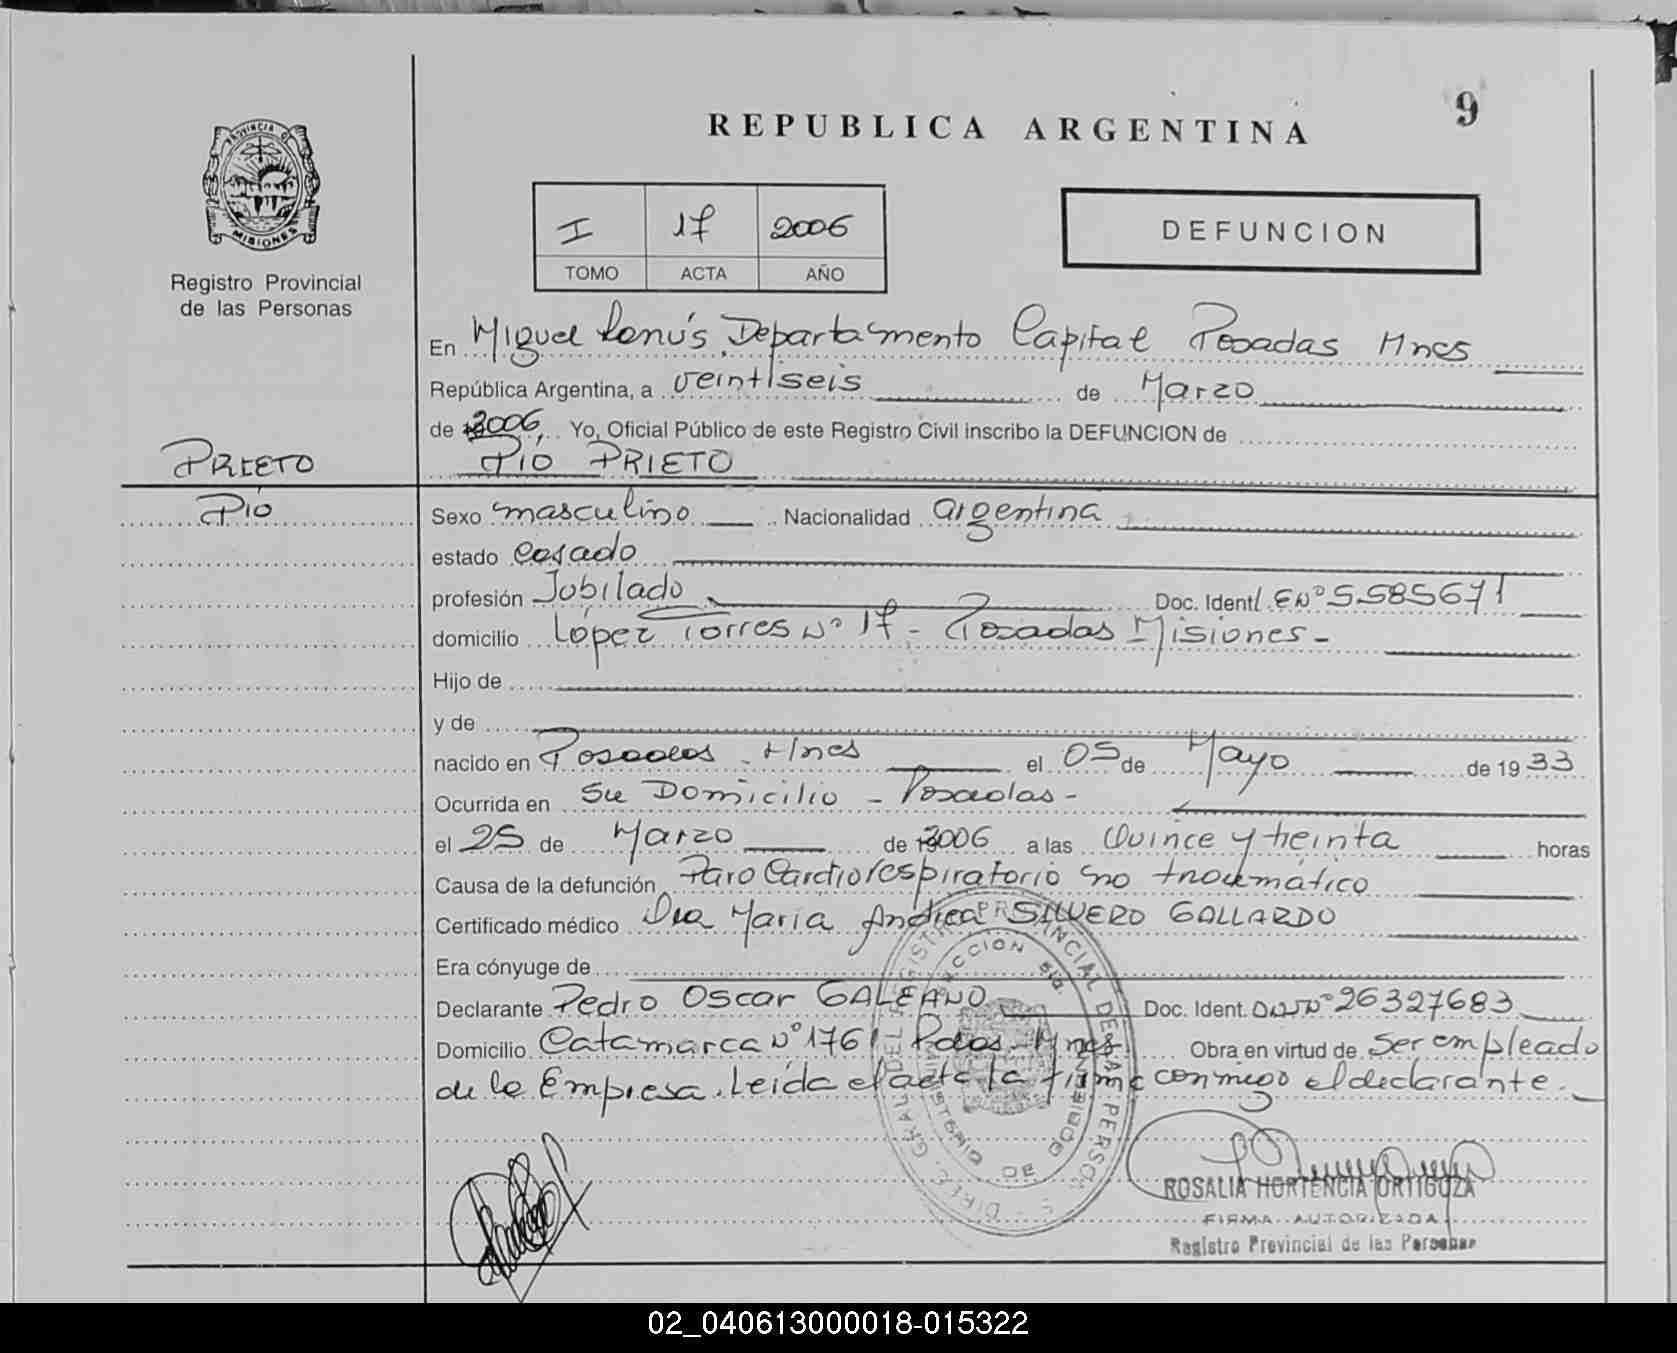 REPUBLICA ARGENTINA
9
PROVINCIA DE
MISIONES
Registro Provincial
de las Personas
I 17 2006
TOMO ACTA AÑO
DEFUNCION
En Miguel Lanús, Departamento Capital Posadas Mnes
República Argentina, a veintiseis de Marzo
de 2006, Yo, Oficial Público de este Registro Civil inscribo la DEFUNCION de
PRIETO
PIO PRIETO
Pío
Sexo masculino Nacionalidad argentina
estado casado
profesión Jubilado Doc. Ident L.E Nº 5.585671
domicilio López Torres Nº 17 - Posadas Misiones -
Hijo de
y de
nacido en Posadas - Mnes el 05 de Mayo de 1933
Ocurrida en su Domicilio - Posadas -
el 25 de Marzo de 2006 a las Quince y treinta horas
Causa de la defunción Paro Cardiorespiratorio no traumático
Certificado médico Dra María Andrea SILVERO GALLARDO
Era cónyuge de
Declarante Pedro Oscar GALEANO Doc. Ident. DNI Nº 26327683
Domicilio Catamarca Nº 1761 Pdas - Mnes Obra en virtud de ser empleado
de la Empresa. Leída el acta la firma conmigo el declarante.
ROSALIA HORTENCIA ORTIGOZA
FIRMA AUTORIZADA
Registro Provincial de las Personas
02_040613000018-015322